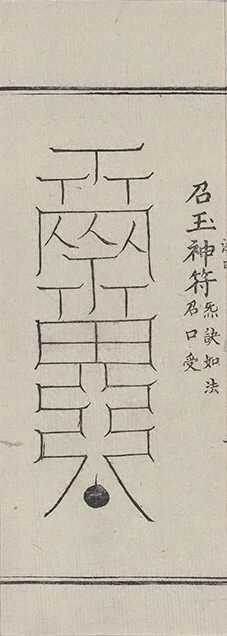 召玉神符
炁訣如法
召口受